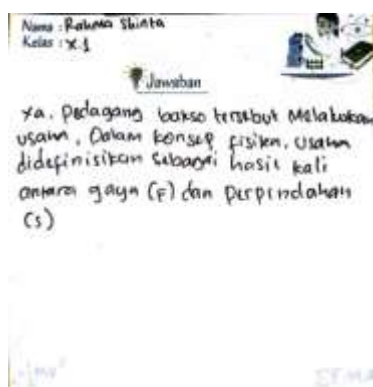 Nama : Rahma Shinta
Kelas : X.1
Jawaban
Ya. Pedagang bakso tersebut Melakukan
usaha, Dalam konsep fisika, usaha
didefinisikan sebagai hasil kali
antara gaya (F) dan perpindahan
(s)